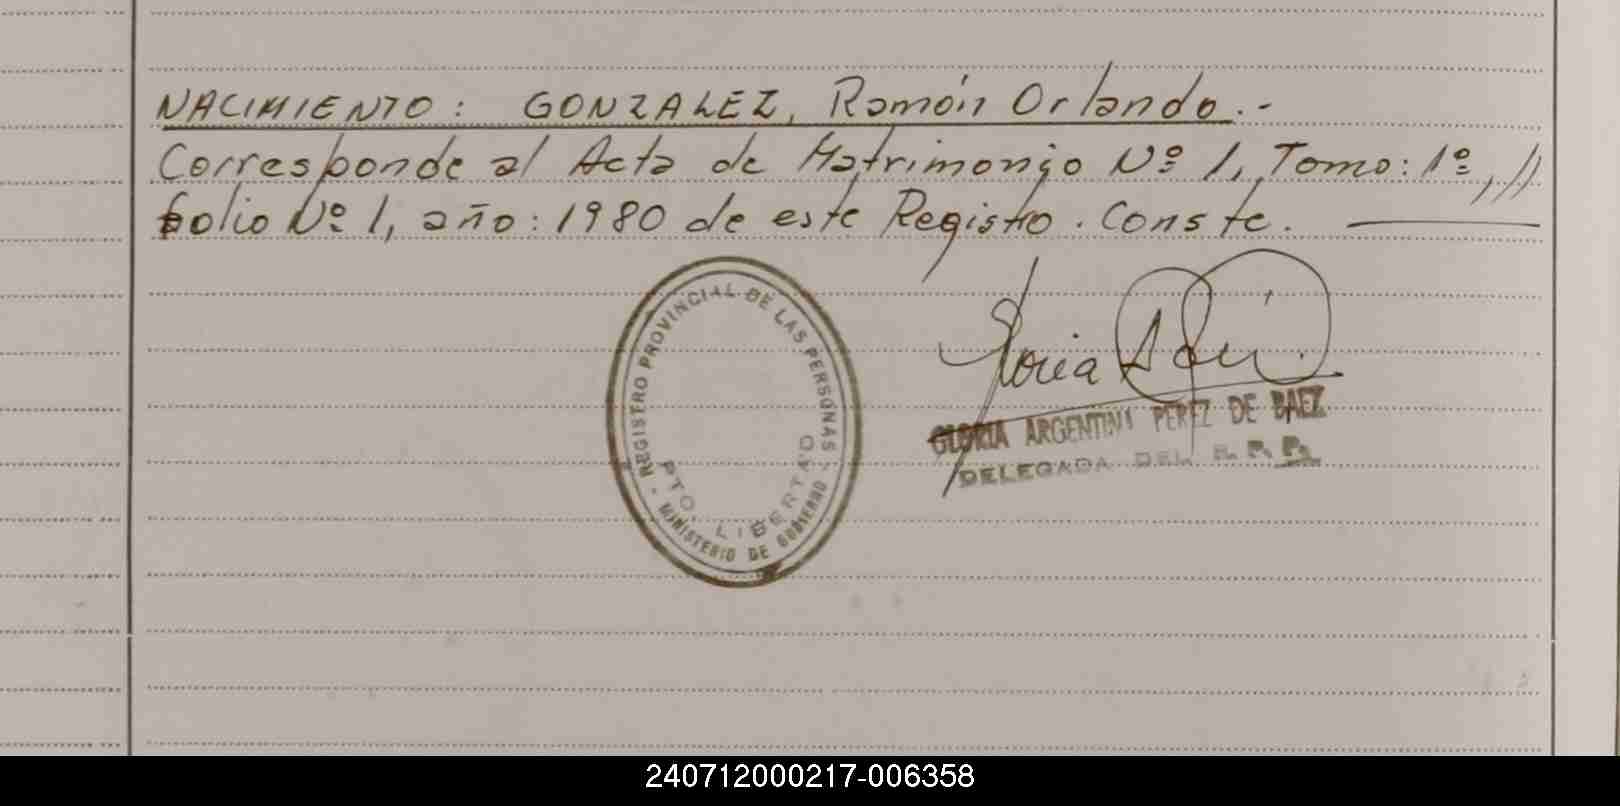 NACIMIENTO: GONZALEZ, Ramón Orlando.-
Corresponde al Acta de Matrimonio Nº 1, Tomo: 1º, //
folio Nº 1, año: 1980 de este Registro. Conste.
REGISTRO PROVINCIAL DE LAS PERSONAS
- MINISTERIO DE GOBIERNO -
PTO. LIBERTAD
GLORIA ARGENTINA PEREZ DE BAEZ
DELEGADA DEL R. P. P.
240712000217-006358